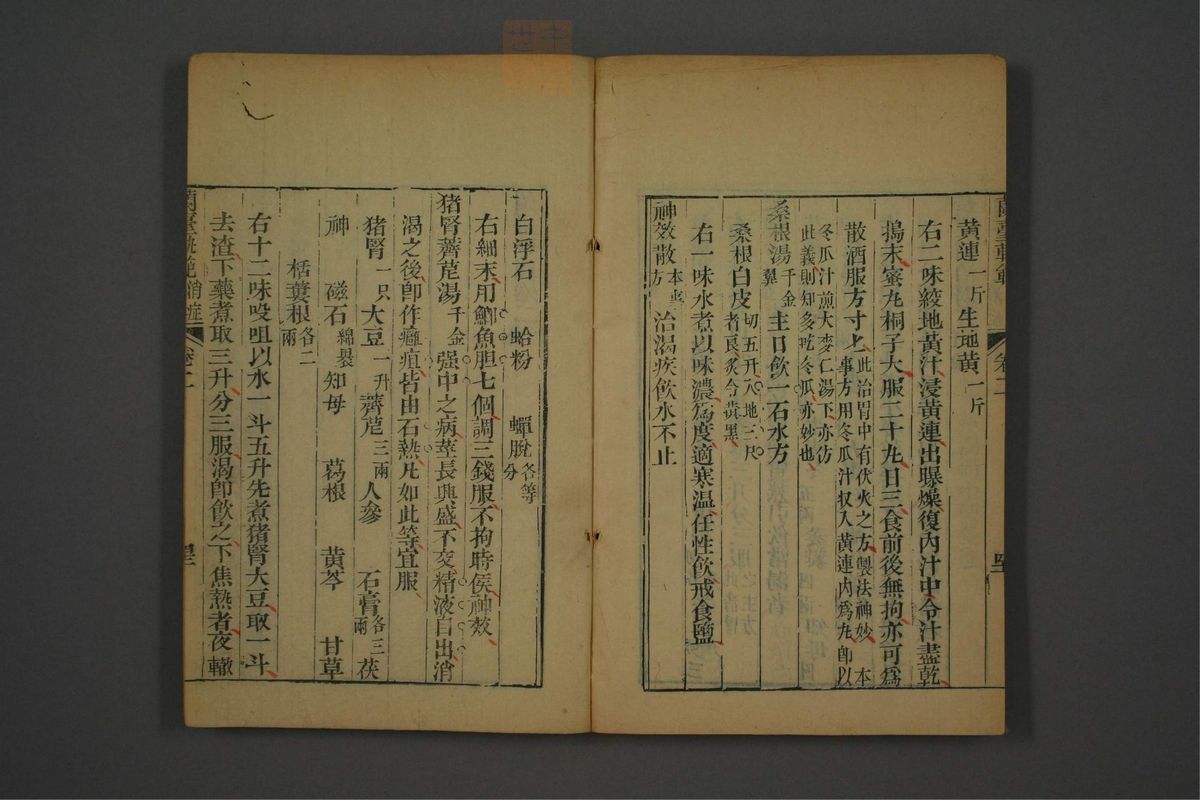 黃連一斤生地黃一斤
右二味絞地黃汁浸黃連出曝燥復內汁中令汁盡乾
搗末蜜丸桐子大服二十丸日三食前後無拘亦可爲
散酒服方寸匕此治胃中有伏火之方製法神妙 本
事方用冬瓜汁収入黃連內爲丸即以
冬瓜汁煎大麥仁湯下亦仿
此義則知多吃冬瓜亦妙也
桑根湯千金翼主日飲一石水方
桑根白皮切五升入地三尺
者良炙令黃黑
右一味水煮以味濃爲度適寒温任性飲戒食鹽
神效散本事方治渴疾飲水不止
白浮石 蛤粉 蟬脫各等分
右細末用鯽魚胆七個調三錢服不拘時侯神效
猪腎薺苨湯千金强中之病莖長興盛不交精液自出消
渴之後卽作癰疽皆由石熱凡如此等宜服
猪腎一只大豆一升薺苨三兩人參 石膏各三兩茯
神 磁石綿裹知母 葛根 黃芩 甘草
栝蔞根各二兩
右十二味㕮咀以水一斗五升先煮猪腎大豆取一斗
去渣下藥煮取三升分三服渴卽飲之下焦熱者夜輙
蘭臺軌範消症 卷二